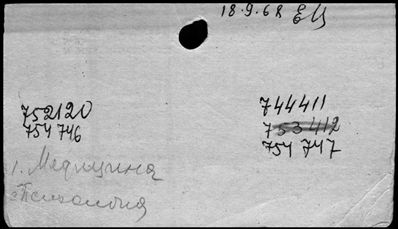 18.9.62 ЕЦ
752120
754746
744411
753412
754747
1. Медицина
Психология